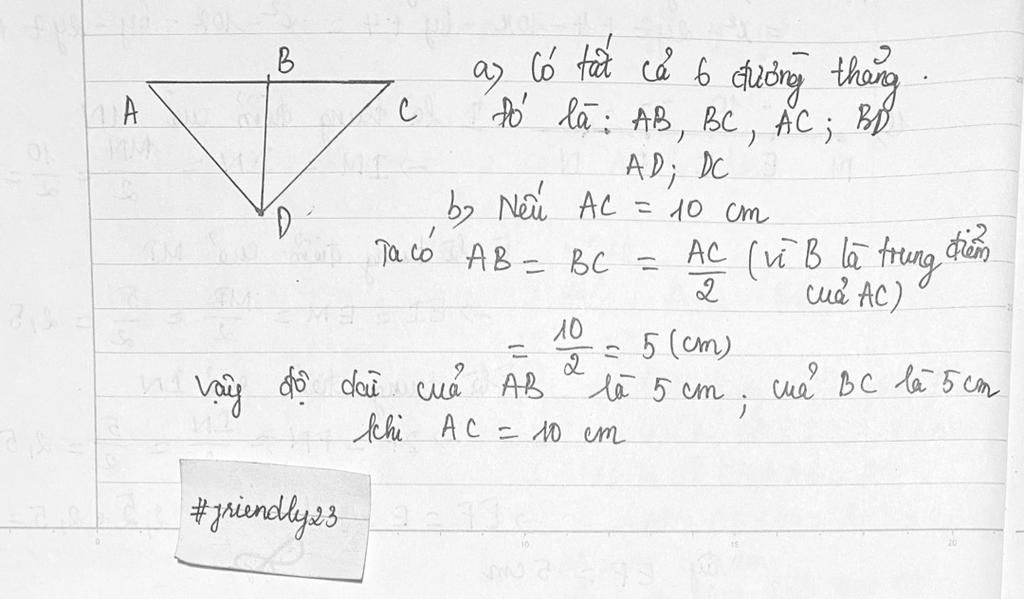 B
A
C
D
a) Có tất cả 6 đường thẳng.
Đó là: AB, BC, AC; BD
AD; DC
b) Nếu AC = 10 cm
Ta có AB = BC = AC/2 (vì B là trung điểm
của AC)
= 10/2 = 5 (cm)
Vậy độ dài của AB là 5 cm; của BC là 5 cm
khi AC = 10 cm
#friendly23